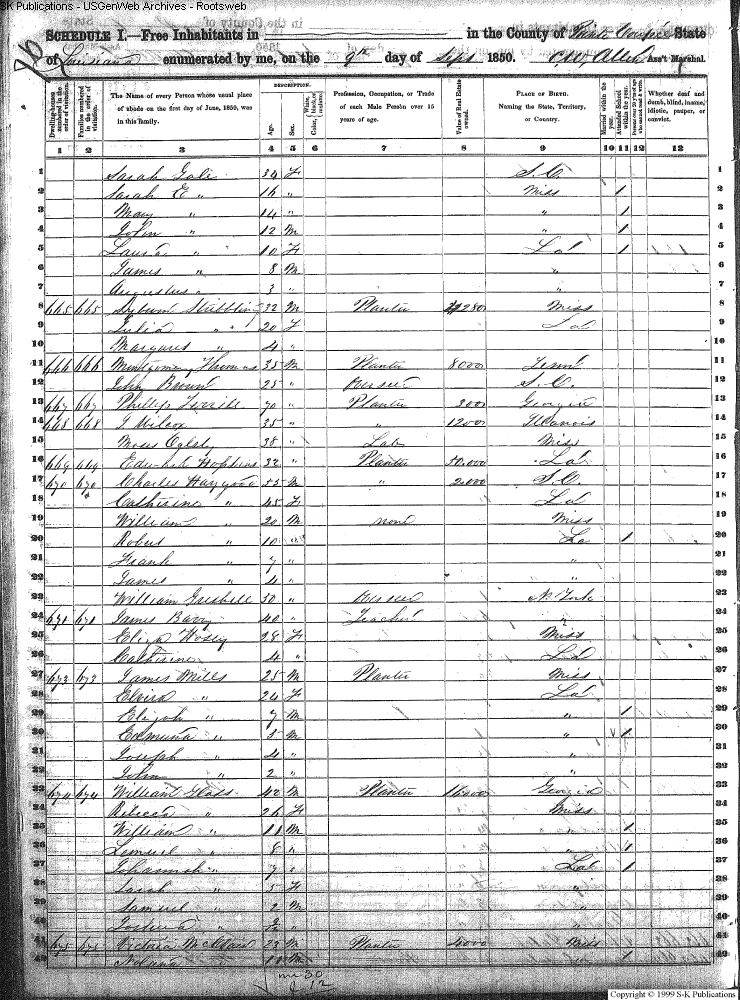 SK Publications - USGenWeb Archives - Rootsweb
Schedule I.—Free Inhabitants in in the County of Point Coupee State
of Louisiana enumerated by me, on the 9th day of Sept 1850. Allen Ass't Marshal.
Dwelling-houses numbered in the order of visitation.
Families numbered in the order of visitation.
The Name of every Person whose usual place of abode on the first day of June, 1850, was in this family.
Description.
Age.
Sex.
Color, White, black, or mulatto.
Profession, Occupation, or Trade of each Male Person over 15 years of age.
Value of Real Estate owned.
Place of Birth. Naming the State, Territory, or Country.
Married within the year.
Attended School within the year.
Persons over 20 y'rs of age who cannot read & write.
Whether deaf and dumb, blind, insane, idiotic, pauper, or convict.
1 2 3 4 5 6 7 8 9 10 11 12 13
1 Sarah Gale 34 F S.C. 1
2 Sarah E " 16 " Miss 1 2
3 Mary " 14 " " 1 3
4 John " 12 M " 1 4
5 Laura " 10 F La 1 5
6 James " 8 M " 6
7 Augustus " 3 " " 7
8 665 665 Stribbling 32 M Planter Miss 8
9 Julia " 20 F La 9
10 Margaret " 4 " 10
11 666 666 Montgomery Thomas 35 M Planter 8000 Tenn 11
12 John 25 " Overseer S.C. 12
13 667 667 Phillip 70 " Planter 3000 Georgia 13
14 668 668 J Wilcox 35 " " 1200 Illanois 14
15 Moses Oglsby 38 " Lab Miss 15
16 669 669 Edward Hopkins 32 " Planter 50.000 La 16
17 670 670 Charles 55 M " 2.000 S.C. 17
18 Catherine " 45 F La 18
19 William " 20 M none Miss 19
20 Robert " 10 " La 1 20
21 Frank " 7 " " 21
22 James " 4 " " 22
23 William 30 " Overseer N. York 23
24 671 671 James Barry 40 " Teacher 24
25 Eliza Hosey 28 F Miss 25
26 Catherine 4 " La 26
27 673 673 James Mills 25 M Planter Miss 27
28 Elvira " 24 F La 28
29 Elijah " 7 M " 1 29
30 " 5 M " 1 30
31 Joseph " 4 " " 31
32 John " 2 " " 32
33 674 674 William Glass 42 M Planter Georgia 33
34 Rebecca " 26 F Miss 34
35 William " 11 M " 1 35
36 Lemuel " 8 " " 1 36
37 " 7 " La 1 37
38 Sarah " 5 F " 38
39 Samuel " 2 M " 39
40 Joshua " " 40
41 675 675 23 M Planter 4000 Miss 41
42 M " 1 42
Copyright © 1999 S-K Publications